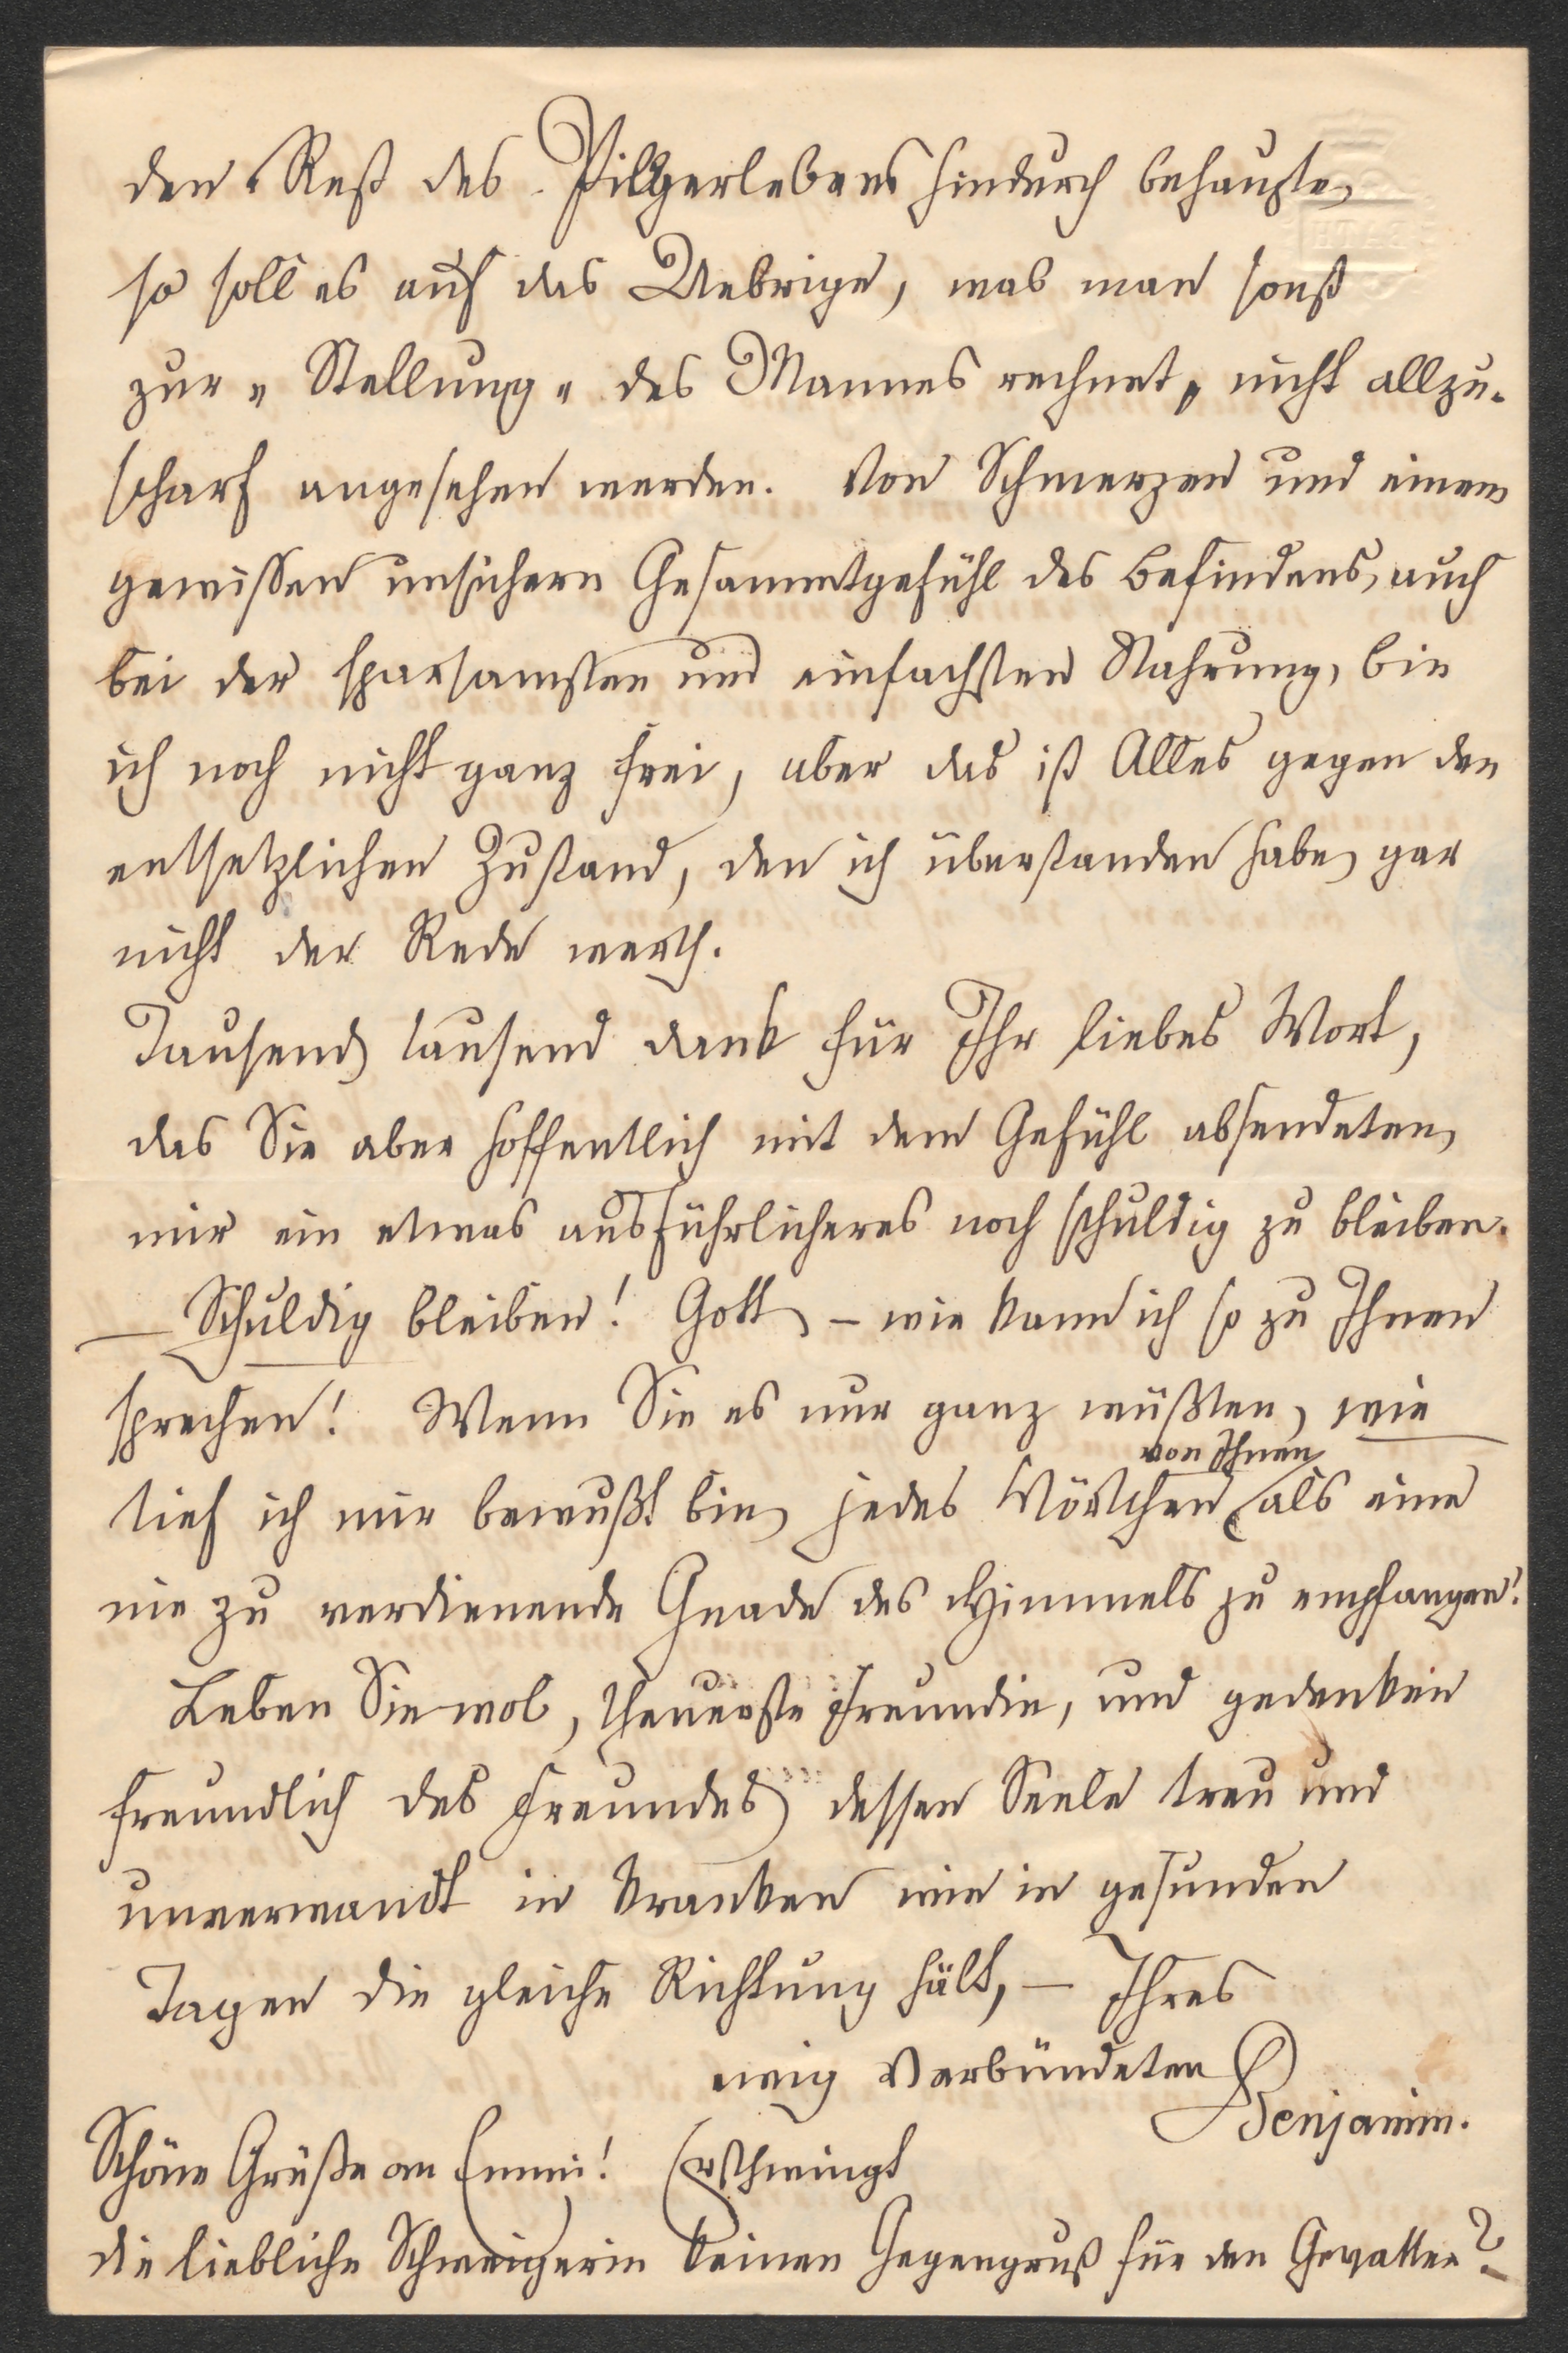 den Rest des Pilgerlebens hindurch behaupte,
so soll es auf das Uebrige, was man sonst
zur „Stellung" des Mannes rechnet, nicht allzu-
scharf angesehen werden. Von Schmerzen und einem
gewissen unsichern Gesammtgefühl des Befindens, auch
bei der sparsamsten und einfachsten Nahrung, bin
ich noch nicht ganz frei, aber das ist Alles gegen den
entsetzlichen Zustand, den ich überstanden habe, gar
nicht der Rede werth.
Tausend, tausend Dank für Ihr liebes Wort,
das Sie aber hoffentlich mit dem Gefühl absendeten,
mir ein etwas ausführlicheres noch schuldig zu bleiben.
— Schuldig bleiben! Gott, – wie kann ich so zu Ihnen
sprechen! Wenn Sie es nur ganz wüßten, wie
von Ihnen
tief ich mir bewußt bin, jedes Wörtchen als eine
nie zu verdienende Gnade des Himmels zu empfangen!
Leben Sie wol, theuerste Freundin, und gedenken
freundlich des Freundes, dessen Seele treu und
unverwandt in kranken wie in gesunden
Tagen die gleiche Richtung hält, — Ihres
ewig Verbündeten
Benjamin.
Schöne Grüße an Emmi! Erschwingt
die liebliche Schweigerin keinen Gegengruß für den Gevatter?